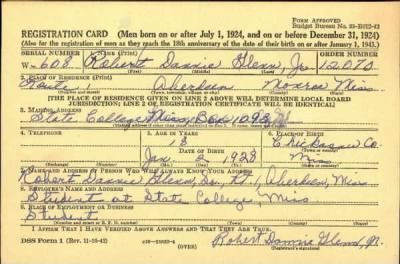 FORM APPROVED
Budget Bureau No. 33-R012-42
REGISTRATION CARD (Men born on or after July 1, 1924, and on or before December 31, 1924)
(Also for the registration of men as they reach the 18th anniversary of the date of their birth on or after January 1, 1943.)
SERIAL NUMBER 1. NAME (Print) ORDER NUMBER
W-608 Robert Dannie Glenn Jr. 12070
(First) (Middle) (Last)
2. PLACE OF RESIDENCE (Print)
Route 1 Aberdeen Monroe Miss.
[THE PLACE OF RESIDENCE GIVEN ON LINE 2 ABOVE WILL DETERMINE LOCAL BOARD
JURISDICTION; LINE 2 OF REGISTRATION CERTIFICATE WILL BE IDENTICAL]
3. MAILING ADDRESS
State College Miss, Box 1093
4. TELEPHONE 5. AGE IN YEARS 6. PLACE OF BIRTH
18 Chickasaw Co.
DATE OF BIRTH
Jan 2 1925 Miss
(Exchange) (Number) (Mo.) (Day) (Yr.) (State or country)
7. NAME AND ADDRESS OF PERSON WHO WILL ALWAYS KNOW YOUR ADDRESS
Robert Dannie Glenn, Sr., Rt. 1, Aberdeen, Miss
8. EMPLOYER'S NAME AND ADDRESS
Student at State College, Miss.
9. PLACE OF EMPLOYMENT OR BUSINESS
Student
I AFFIRM THAT I HAVE VERIFIED ABOVE ANSWERS AND THAT THEY ARE TRUE.
DSS Form 1 (Rev. 11-16-42) (OVER)
Robert Dannie Glenn, Jr.
(Registrant's signature)